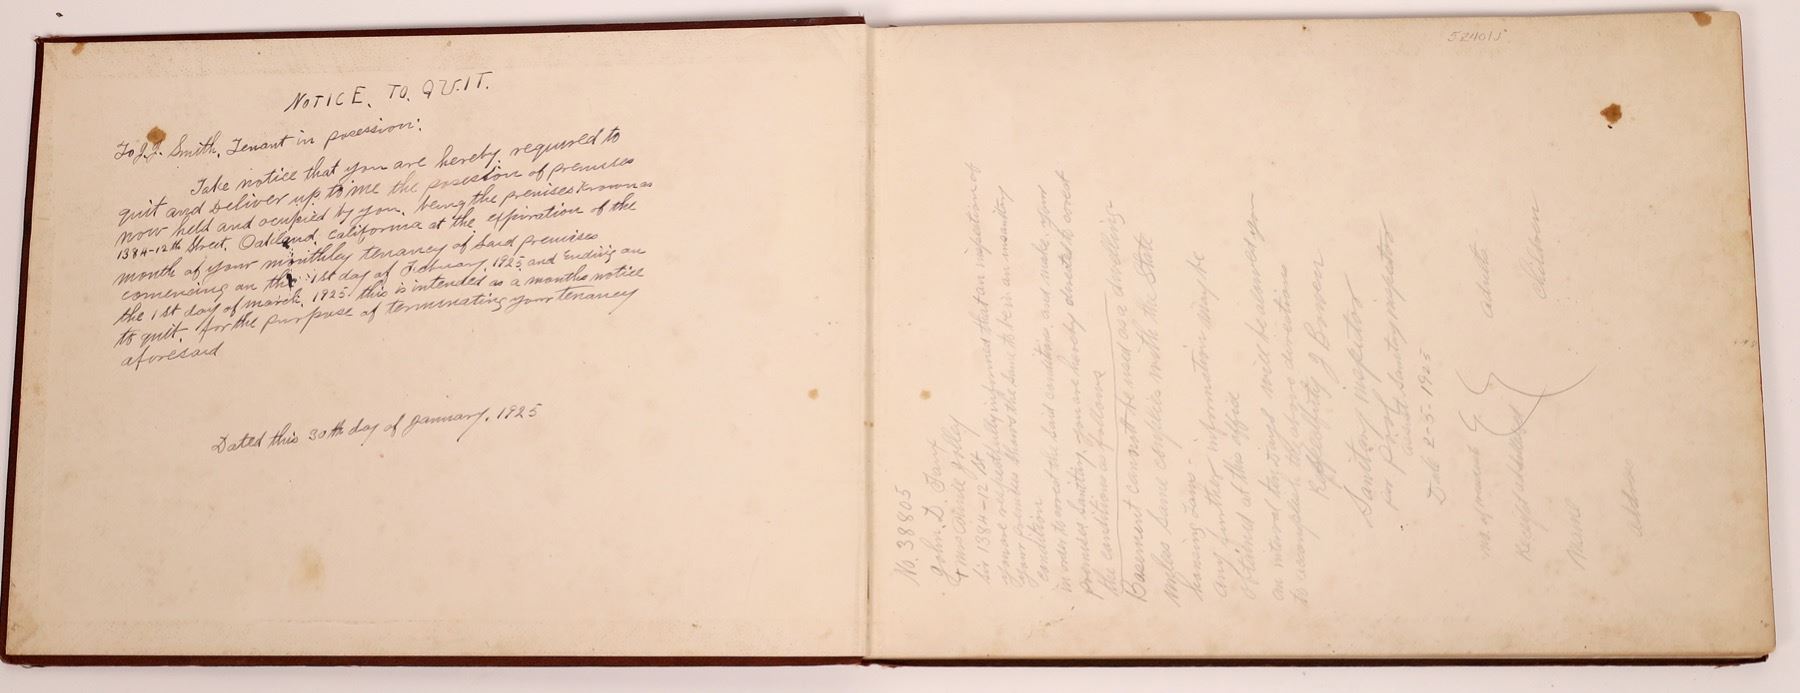 NOTICE. TO. QUIT.
To J.J. Smith, Tenant in posession:
Take notice that you are hereby required to
quit and Deliver up to me the posession of premises
now held and ocupied by you. being the premises known as
1384-12th Street. Oakland. California at the expiration of the
month of your monthley tenancy of said premises
comencing on the 1st day of February, 1925 and Ending on
the 1st day of march, 1925. this is intended as a months notice
to quit. for the purpose of terminating your tenancy
aforesaid
Dated this 30th day of January, 1925
524015
No. 38805
John. D.
1384-12 St
you are respectfully informed that an inspection of
your premises shows the same to be in an unsanitary
condition
in order to correct the said conditions and make your
premises sanitary, you are hereby directed to correct
the conditions as follows
Basement cannot be used as a dwelling
unless same complies with the State
housing Laws-
any further information may be
obtained at this office
days will be allowed you
to accomplish the above directions
Respectfully J Bowen
Sanitary inspector
for
Sanitary inspector
Date 2-5-1925
adults
children
Name
address